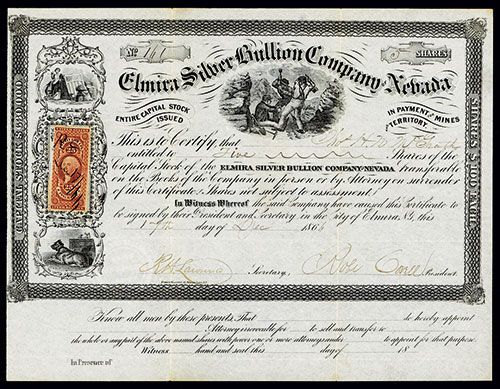 No 161
5 SHARES
Elmira Silver Bullion Company-Nevada
ENTIRE CAPITAL STOCK ISSUED
IN PAYMENT FOR MINES TERRITORY
CAPITAL STOCK
SHARES $100 EACH
This is to Certify that
entitled to Five Shares of the
Capital Stock of the ELMIRA SILVER BULLION COMPANY-NEVADA transferable
on the Books of the Company in person or by Attorney on surrender
of this Certificate; Shares not subject to assessment.
In Witness Whereof the said Company have caused this Certificate to
be signed by their President and Secretary in the City of Elmira N.Y. this
day of Dec 186
Secretary, President.
Know all men by these presents, That do hereby appoint
Attorney irrevocable for to sell and transfer to
the whole or any part of the above named shares with power one or more attorneys under to appoint for that purpose.
Witness hand and seal this day of 18
In Presence of